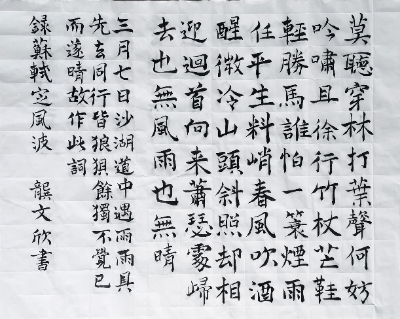 莫聽穿林打葉聲何妨
吟嘯且徐行竹杖芒鞋
輕勝馬誰怕一簑煙雨
任平生料峭春風吹酒
醒微冷山頭斜照却相
迎迴首向来蕭瑟處歸
去也無風雨也無晴
三月七日沙湖道中遇雨雨具
先去同行皆狼狽餘獨不覺已
而遂晴故作此詞
錄蘇軾定風波 龔文欣書